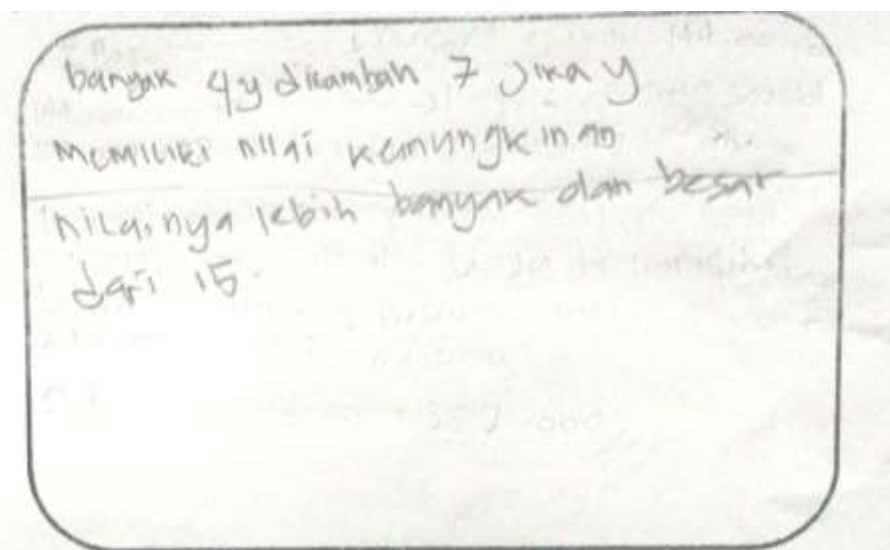 banyak 4y ditambah 7 jika y
memiliki nilai kemungkinan
nilainya lebih banyak dan besar
dari 15.